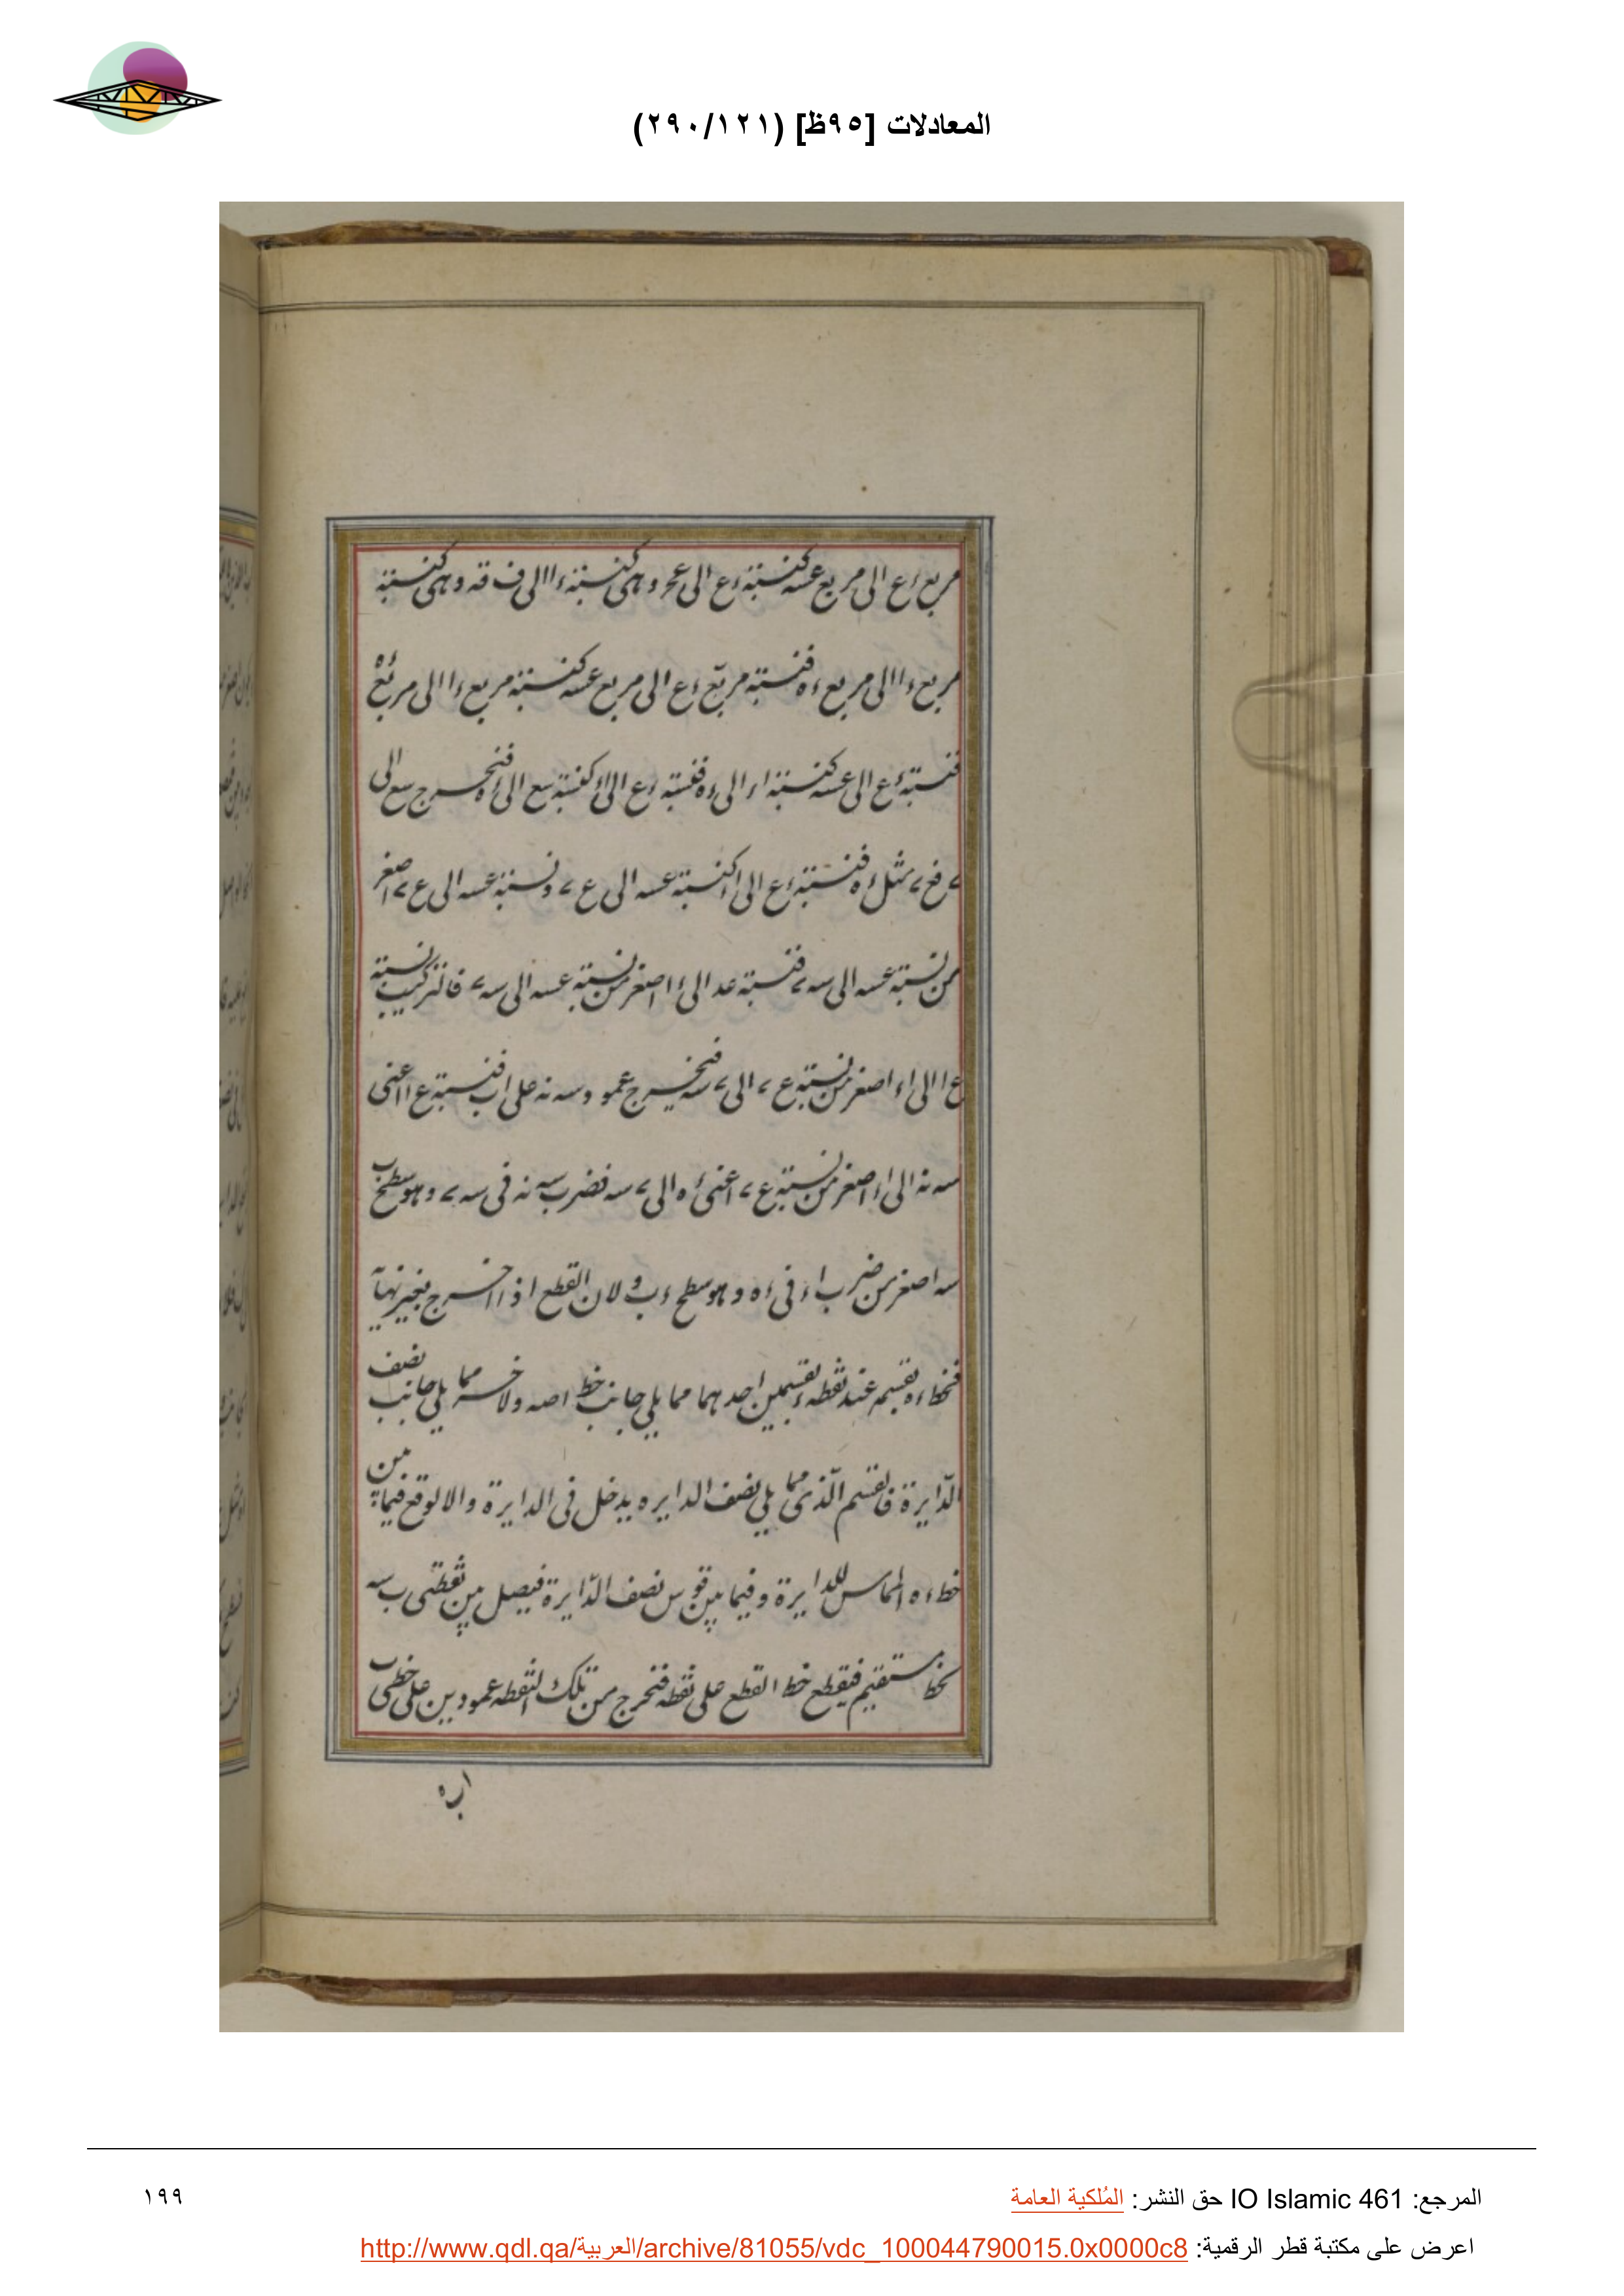 المعادلات [٩٥ظ] (٢٩٠/١٢١)
مربع ءع الى مربع عسه كنسبة ءع الى عحر وهى كنسبة ءا الى ف قه وهى كنسبة
مربع ءا الى مربع ءه فنسبة مربع ءع الى مربع عسه كنسبة مربع ءا الى مربع ءه
فنسبة ءع الى عسه كنسبة اء الى ءه فنسبة ءع الى اء كنسبة سع الى ءه فنخرج سع الى
مثل ءه فنسبة ءع الى اء كنسبة عسه الى ع ونسبة عسه الى ع اصغر
من نسبة عسه الى سه فنسبة عد الى ءا اصغر من نسبة عسه الى سه فالتركيب نسبة
ع ا الى اء اصغر من نسبة ع الى سه فنخرج عمود سه نه على اب فنسبة ع ا اعنى
سه نه الى اء اصغر من نسبة ع اعنى ءه الى سه فضرب سه نه فى سه وهو سطح ب
سه اصغر من ضرب اء فى ءه وهو سطح ءب ولان القطع اذا اخرج بغير نهاية
فخط ءه يقسمه عند نقطه ء بقسمين احدهما مما يلى جانب خط اصه ولاخر مما يلى جانب نصف
الدّايرة فالقسم الّذى مما يلى نصف الدايره يدخل فى الدايرة والا لوقع فيما بين
خط ءه المماس للدايرة وفيما بين قوس نصف الدّايرة فيصل بين نقطتى ب سه
بخط مستقيم فيقطع خط القطع على نقطه فنخرج من تلك النقطه عمودين على خطى ب
اب ه
المرجع: IO Islamic 461 حق النشر: المُلكية العامة
١٩٩
اعرض على مكتبة قطر الرقمية: http://www.qdl.qa/العربية/archive/81055/vdc_100044790015.0x0000c8